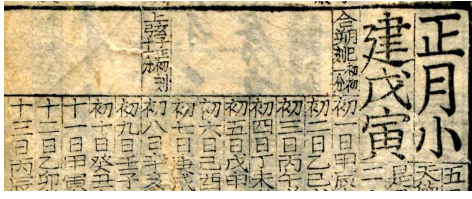 正月小
建戊寅
合朔巳初初刻一分
初一日甲辰
初二日乙巳
初三日丙午
初四日丁未
初五日戊申
初六日己酉
初七日庚戌
上弦子正初刻十一分
初八日辛亥
初九日壬子
初十日癸丑
十一日甲寅
十二日乙卯
十三日丙辰